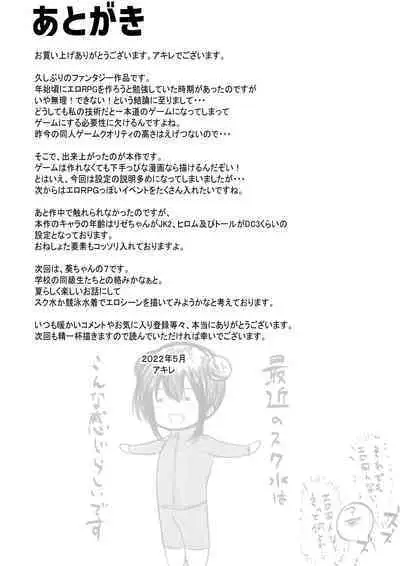 あとがき
お買い上げありがとうございます。アキレでございます。
久しぶりのファンタジー作品です。
年始頃にエロRPGを作ろうと勉強していた時期があったのですが
いや無理！できない！という結論に至りまして・・・
どうしても私の技術だと一本道のゲームになってしまって
ゲームにする必要性に欠けるんですよね。
昨今の同人ゲームクオリティの高さはえげつないので・・・
そこで、出来上がったのが本作です。
ゲームは作れなくても下手っぴな漫画なら描けるんだぞい！
とはいえ、今回は設定の説明多めになってしまいましたが・・・
次からはエロRPGっぽいイベントをたくさん入れたいですね。
あと作中で触れられなかったのですが、
本作のキャラの年齢はリゼちゃんがJK2、ヒロム及びトールがDC3くらいの
設定となっております。
おねしょた要素もコッソリ入れておりますよ。
次回は、葵ちゃんの7です。
学校の同級生たちとの絡みかなぁと。
夏らしく楽しいお話にして
スク水か競泳水着でエロシーンを描いてみようかなと考えております。
いつも暖かいコメントやお気に入り登録等々、本当にありがとうございます。
次回も精一杯描きますので読んでいただければ幸いでございます。
2022年5月
アキレ
最近のスク水は
こんな感じらしいです